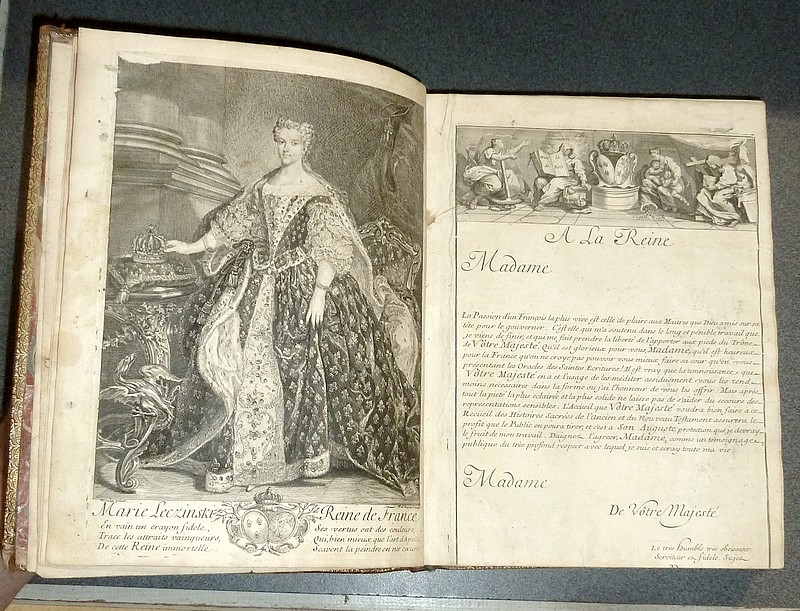 Marie Leczinski Reine de France
En vain un crayon fidele,
Trace les attraits vainqueurs,
De cette Reine immortelle
Ses vertus ont des couleurs,
Qui, bien mieux que l'art d'
Scavent la peindre en nos cœurs
A La Reine
Madame
La Passion d'un François la plus vive est celle de plaire aux Maitres que Dieu a mis sur sa
tête pour le gouverner. C'est elle qui m'a soutenu dans le long et pénible travail que
je viens de finir, et qui me fait prendre la liberté de l'apporter aux pieds du Trône
de Vôtre Majesté. Qu'il est glorieux pour vous, Madame, qu'il est heureux
pour la France qu'on ne croye pas pouvoir vous mieux faire sa cour qu'en vous
presentant les Oracles des Saintes Ecritures! Il est vray que la connoissance, que
Vôtre Majesté en a et l'usage de les méditer assiduement vous les rend
moins nécessaires dans la forme ou j'ai l'honneur de vous les offrir. Mais après
tout la piété la plus eclairée et la plus solide ne laisse pas de s'aider du secours des
représentations sensibles. L'Accueil que Vôtre Majesté voudra bien faire a ce
Recueil des Histoires Sacrées de l'Ancien et du Nouveau Testament assurera le
profit que le Public en poura tirer, et c'est a Son Auguste protection que je devray
le fruit de mon travail. Daignez l'agréer, Madame, comme un témoignage
publique du très profond respect avec lequel je suis et seray toute ma vie
Madame
De Vôtre Majesté
Le très humble très obeissant
Serviteur et fidele Sujet